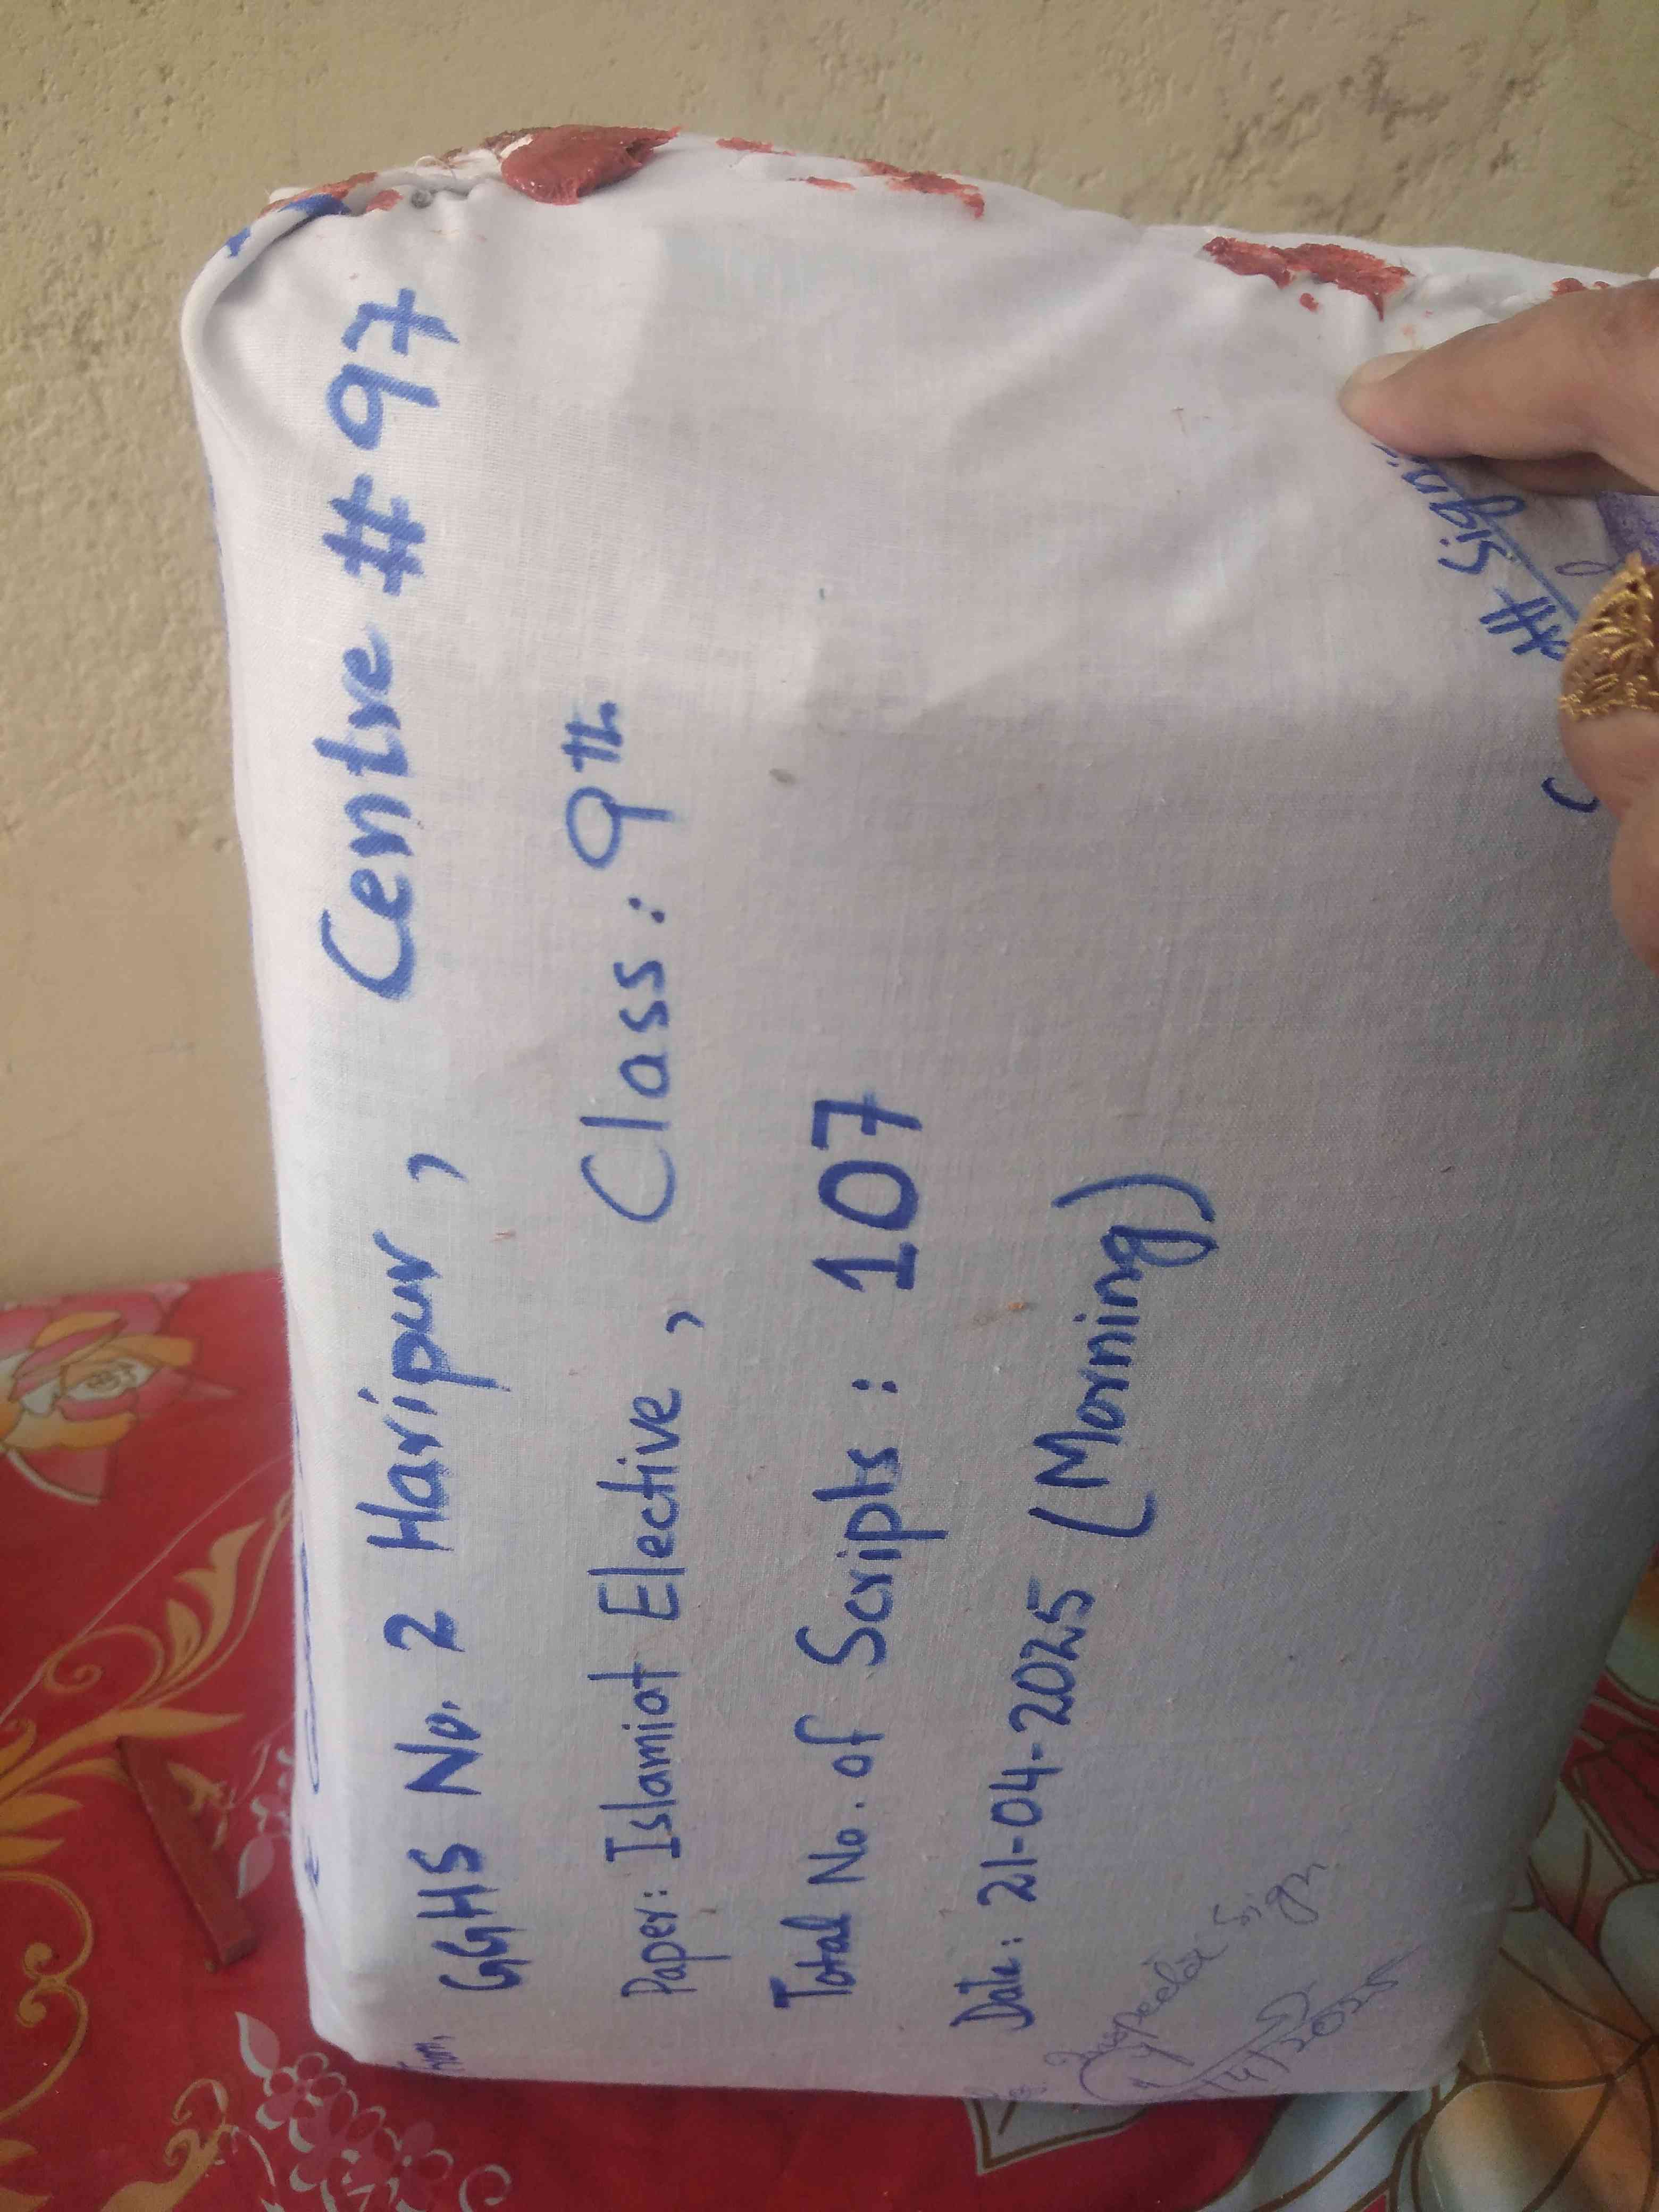 From,
GGHS No. 2 Haripur, Centre # 97
Paper: Islamiat Elective, Class: 9th
Total No. of Scripts: 107
Date: 21-04-2025 (Morning)
Sign